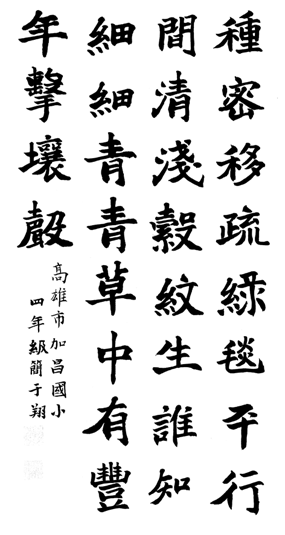 種密移疏綠毯平行
間清淺縠紋生誰知
細細青青草中有豐
年擊壤聲
高雄市加昌國小
四年級簡子翔